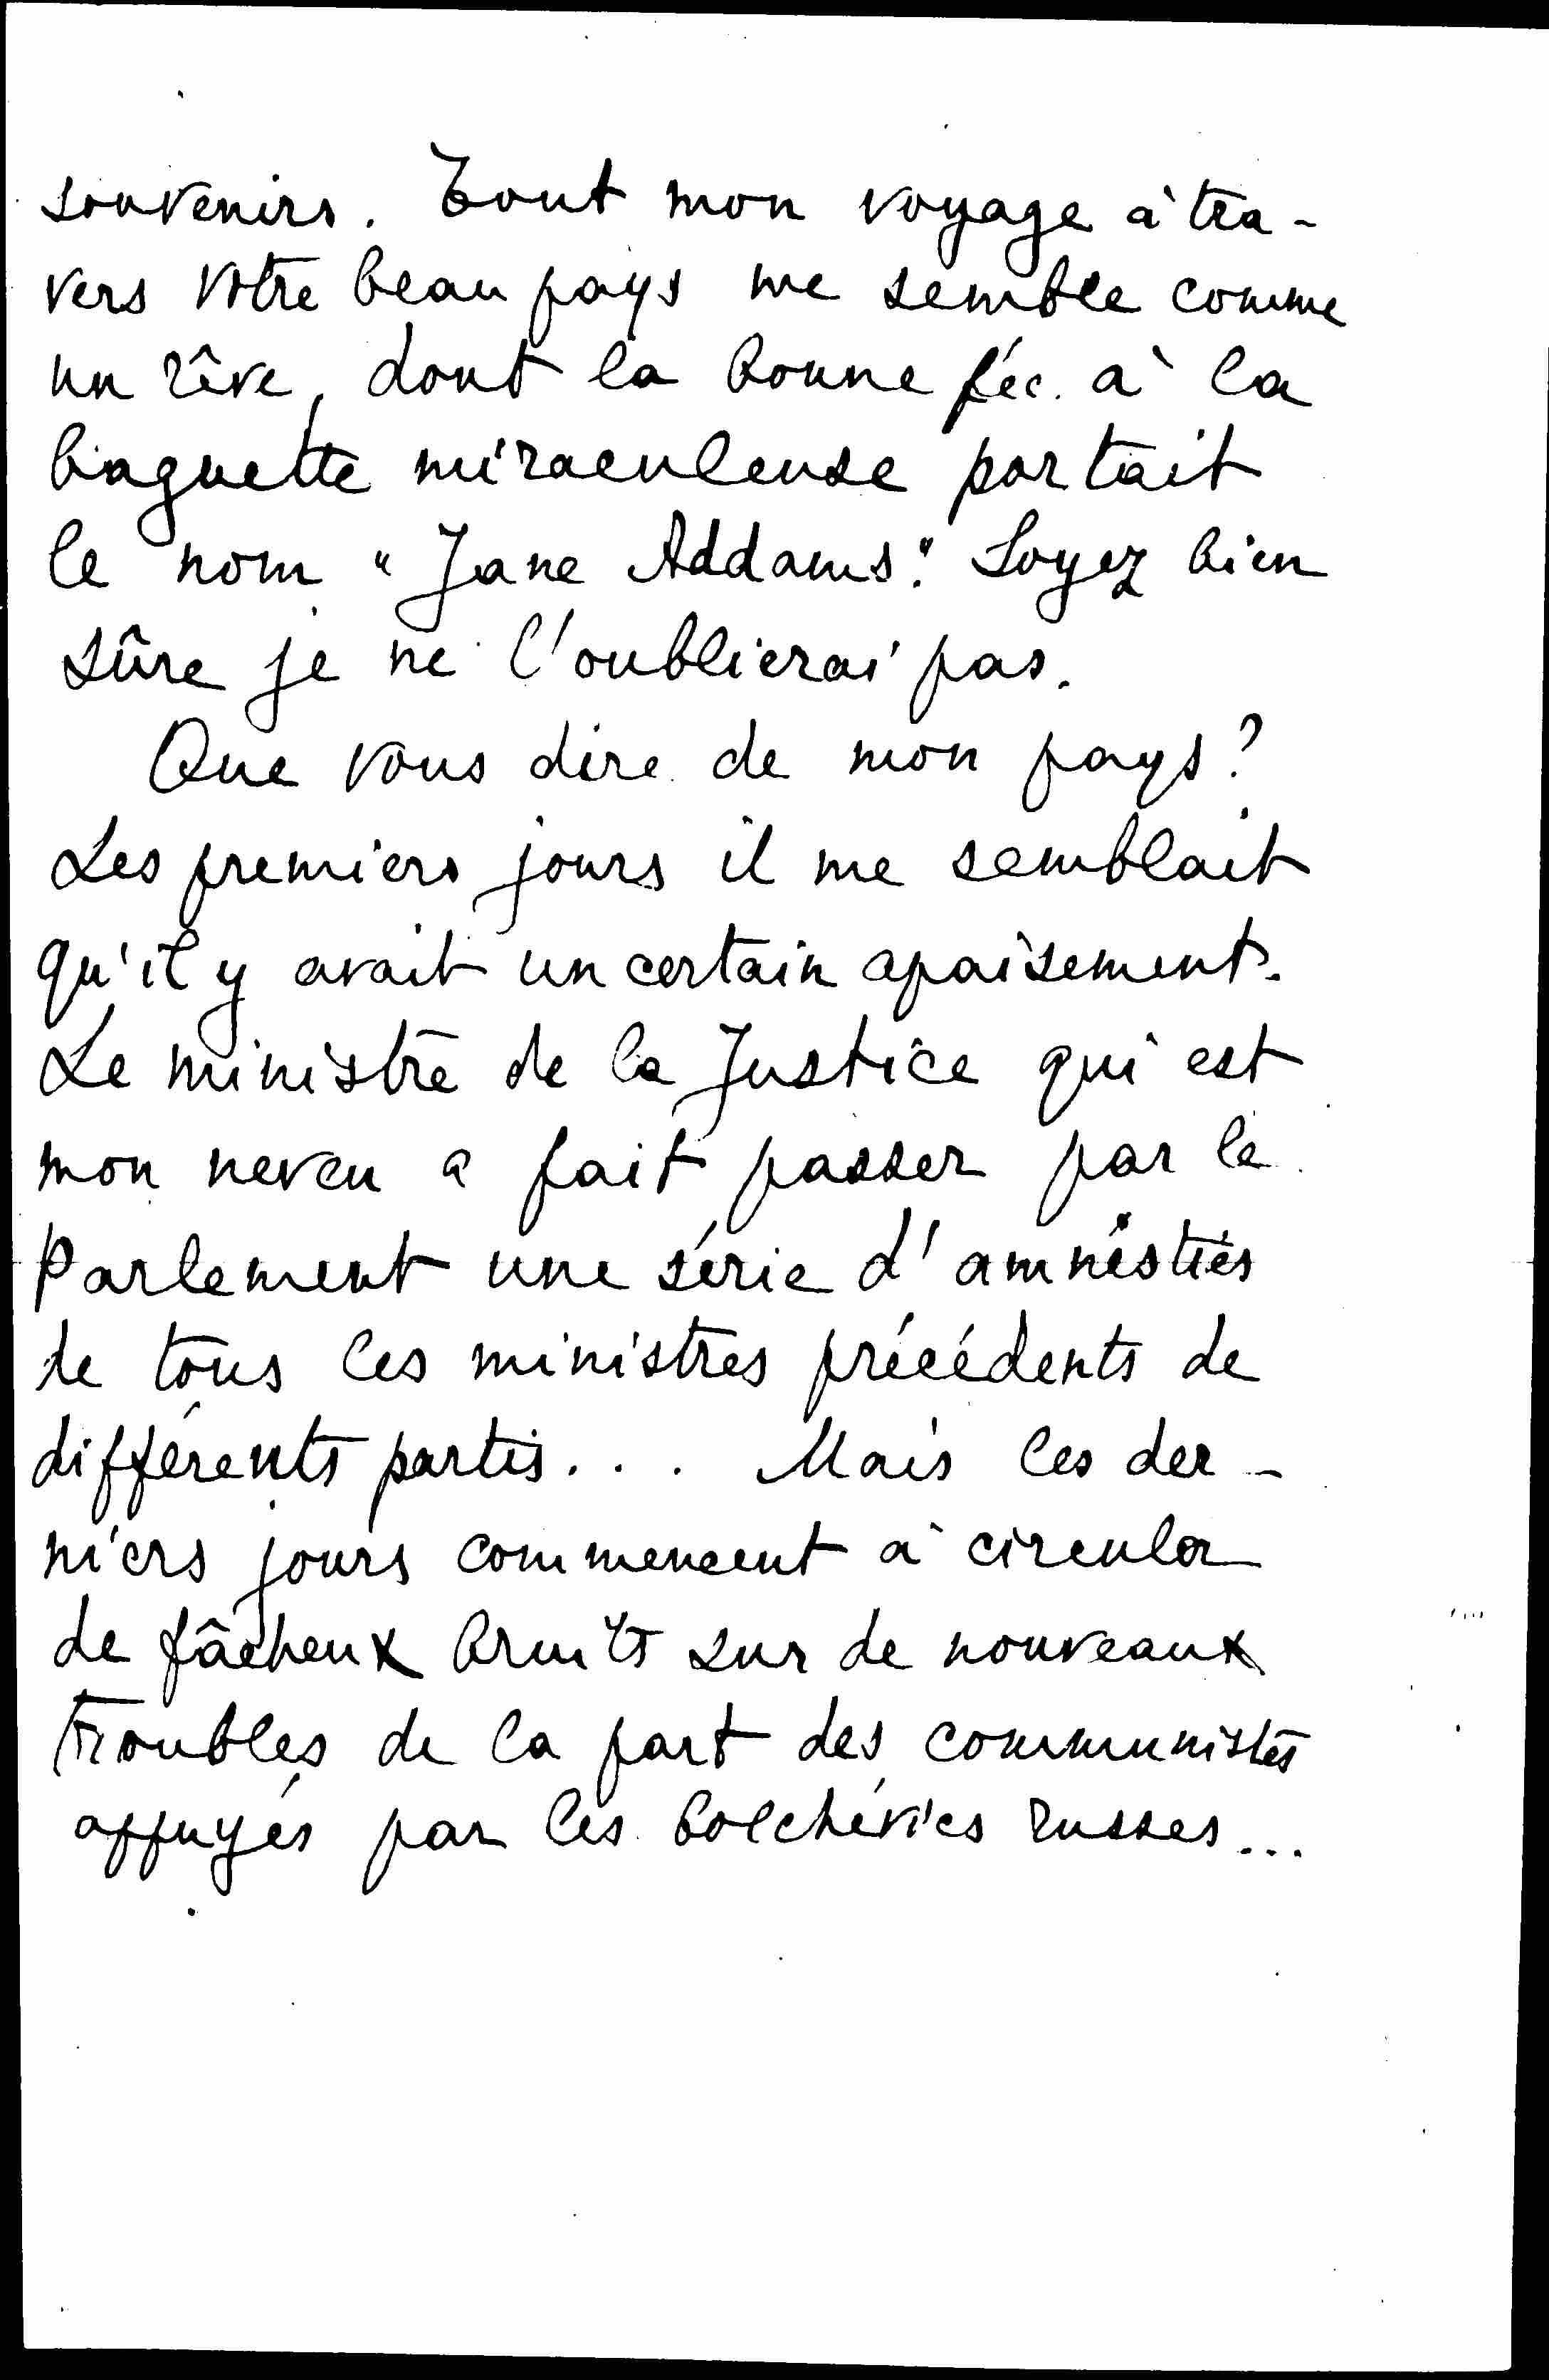 souvenirs. Tout mon voyage à tra-
vers votre beau pays me semble comme
un rêve, dont la bonne fée à la
baguette miraculeuse portait
le nom "Jane Addams". Soyez bien
sûre je ne l'oublierai pas.
Que vous dire de mon pays?
Les premiers jours il me semblait
qu'il y avait un certain apaisement.
Le ministre de la Justice qui est
mon neveu a fait passer par le
Parlement une série d'amnésties
de tous les ministres précédents de
différents partis... Mais les der-
niers jours commencent à circuler
de fâcheux bruits sur de nouveaux
troubles de la part des communistes
appuyés par les bolchévics russes...